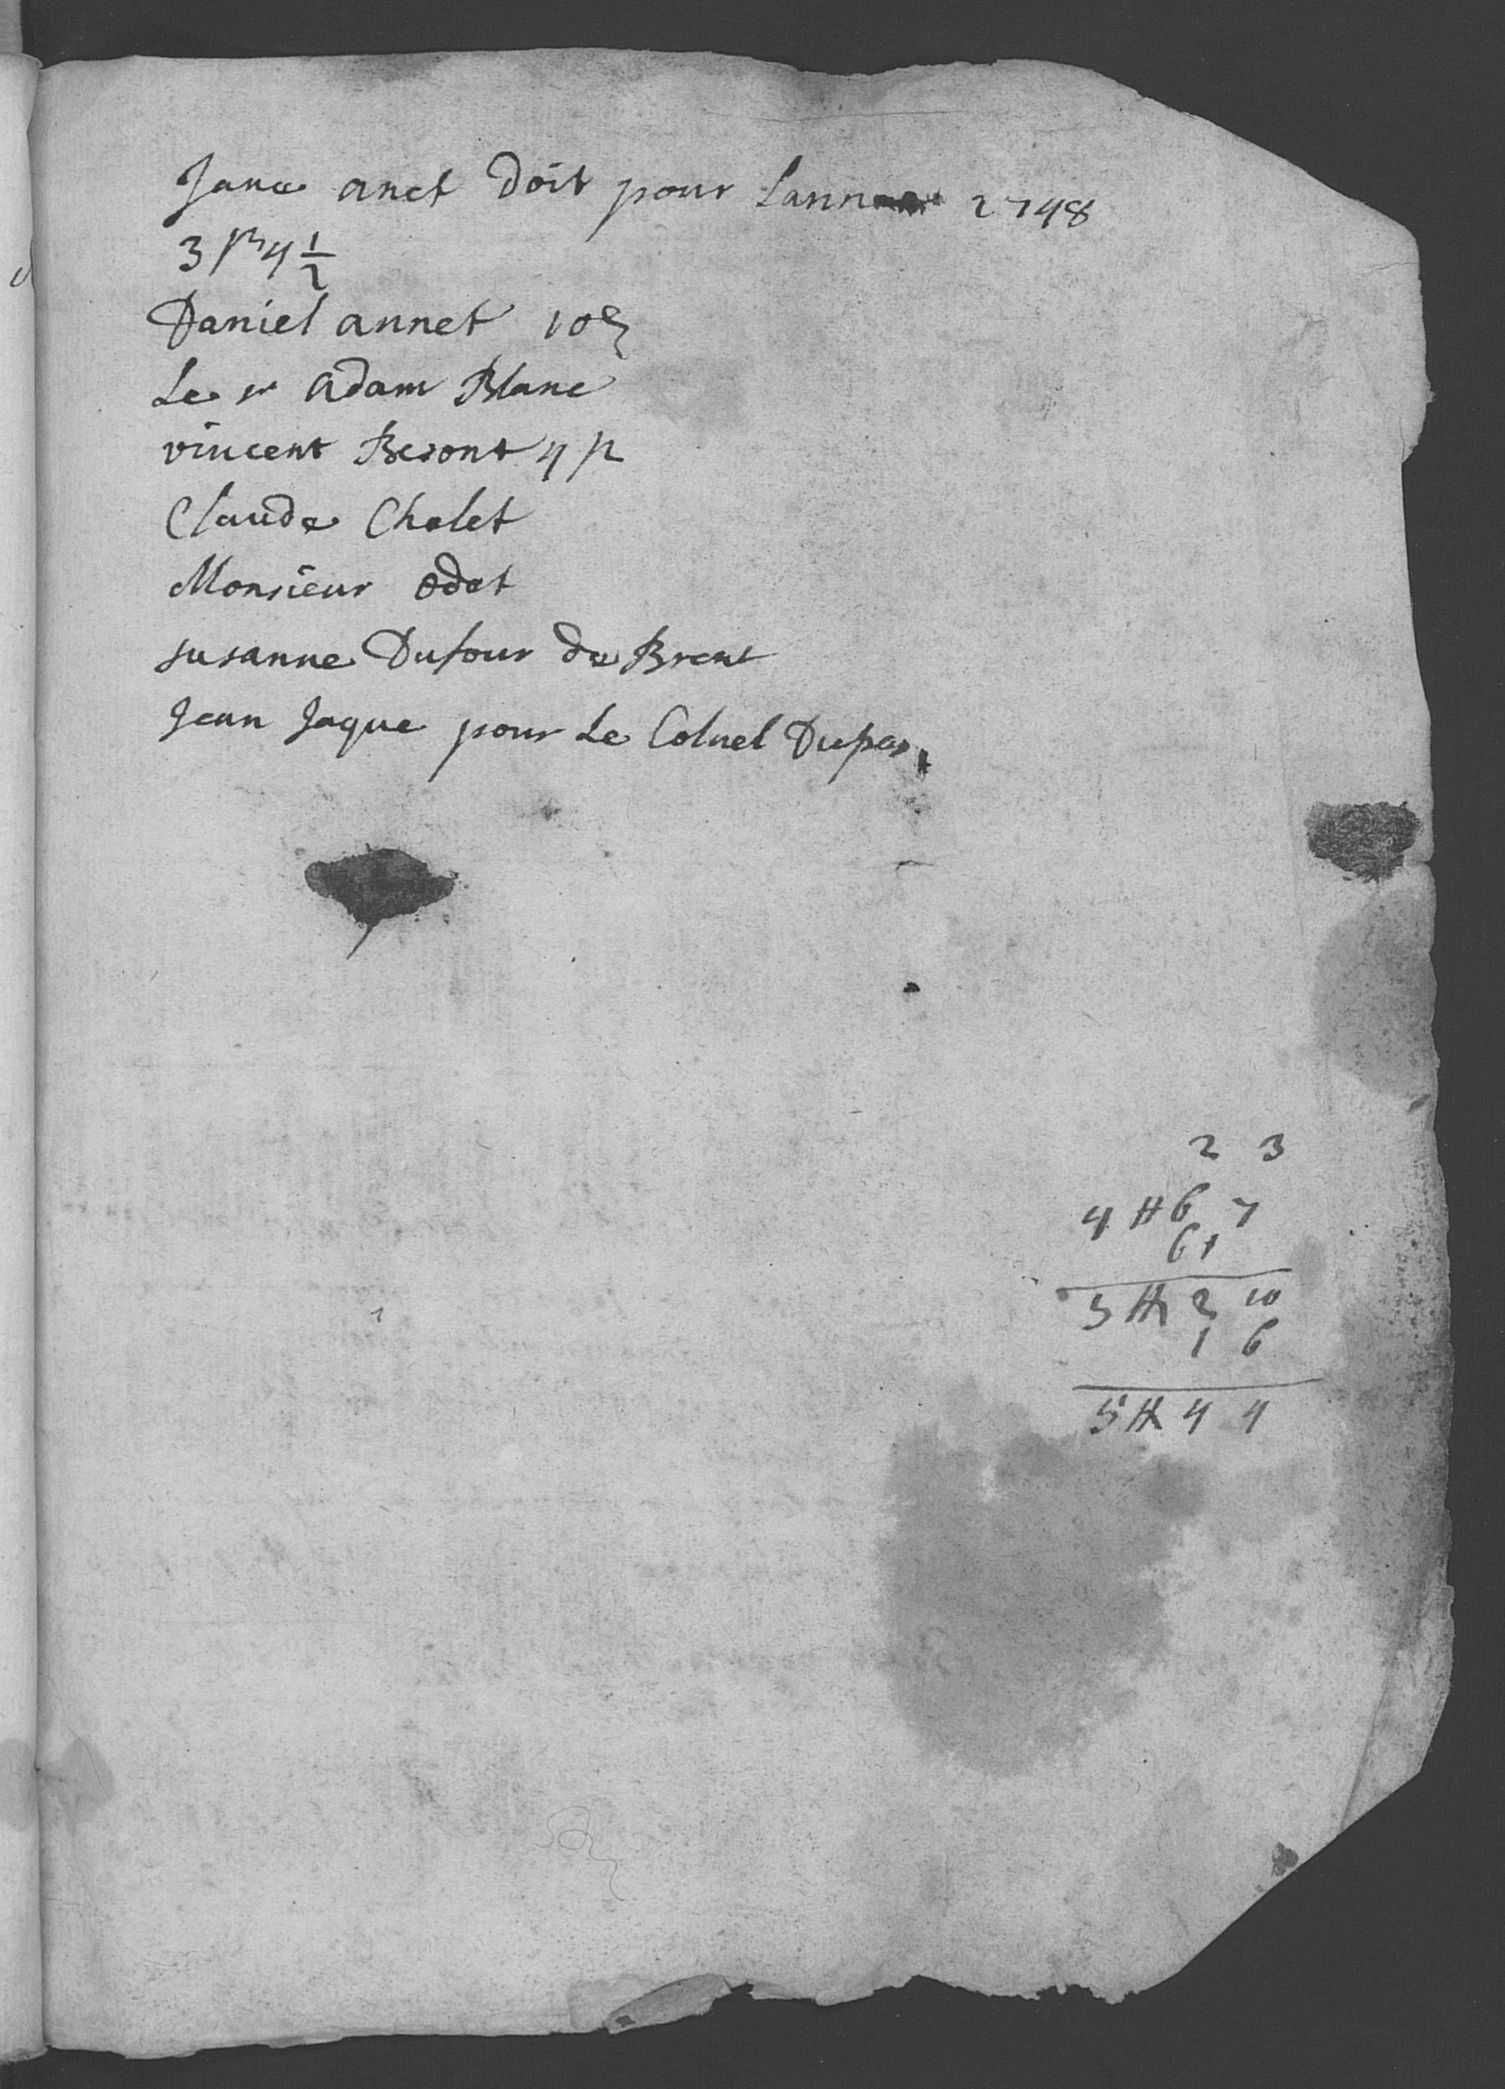 Jane anet Doit pour Lannee 1748
3 ß 4 1/2
Daniel annet 10 ß
Le sr Adam Blanc
vincent Beront 4 ß
Claude Chalet
Monsieur odet
susanne Dufour de Brent
Jean Jaque pour Le Colnel Dupas
2 3
4 # 6 7
6 1
5 # 2 10
1 6
5 # 4 4